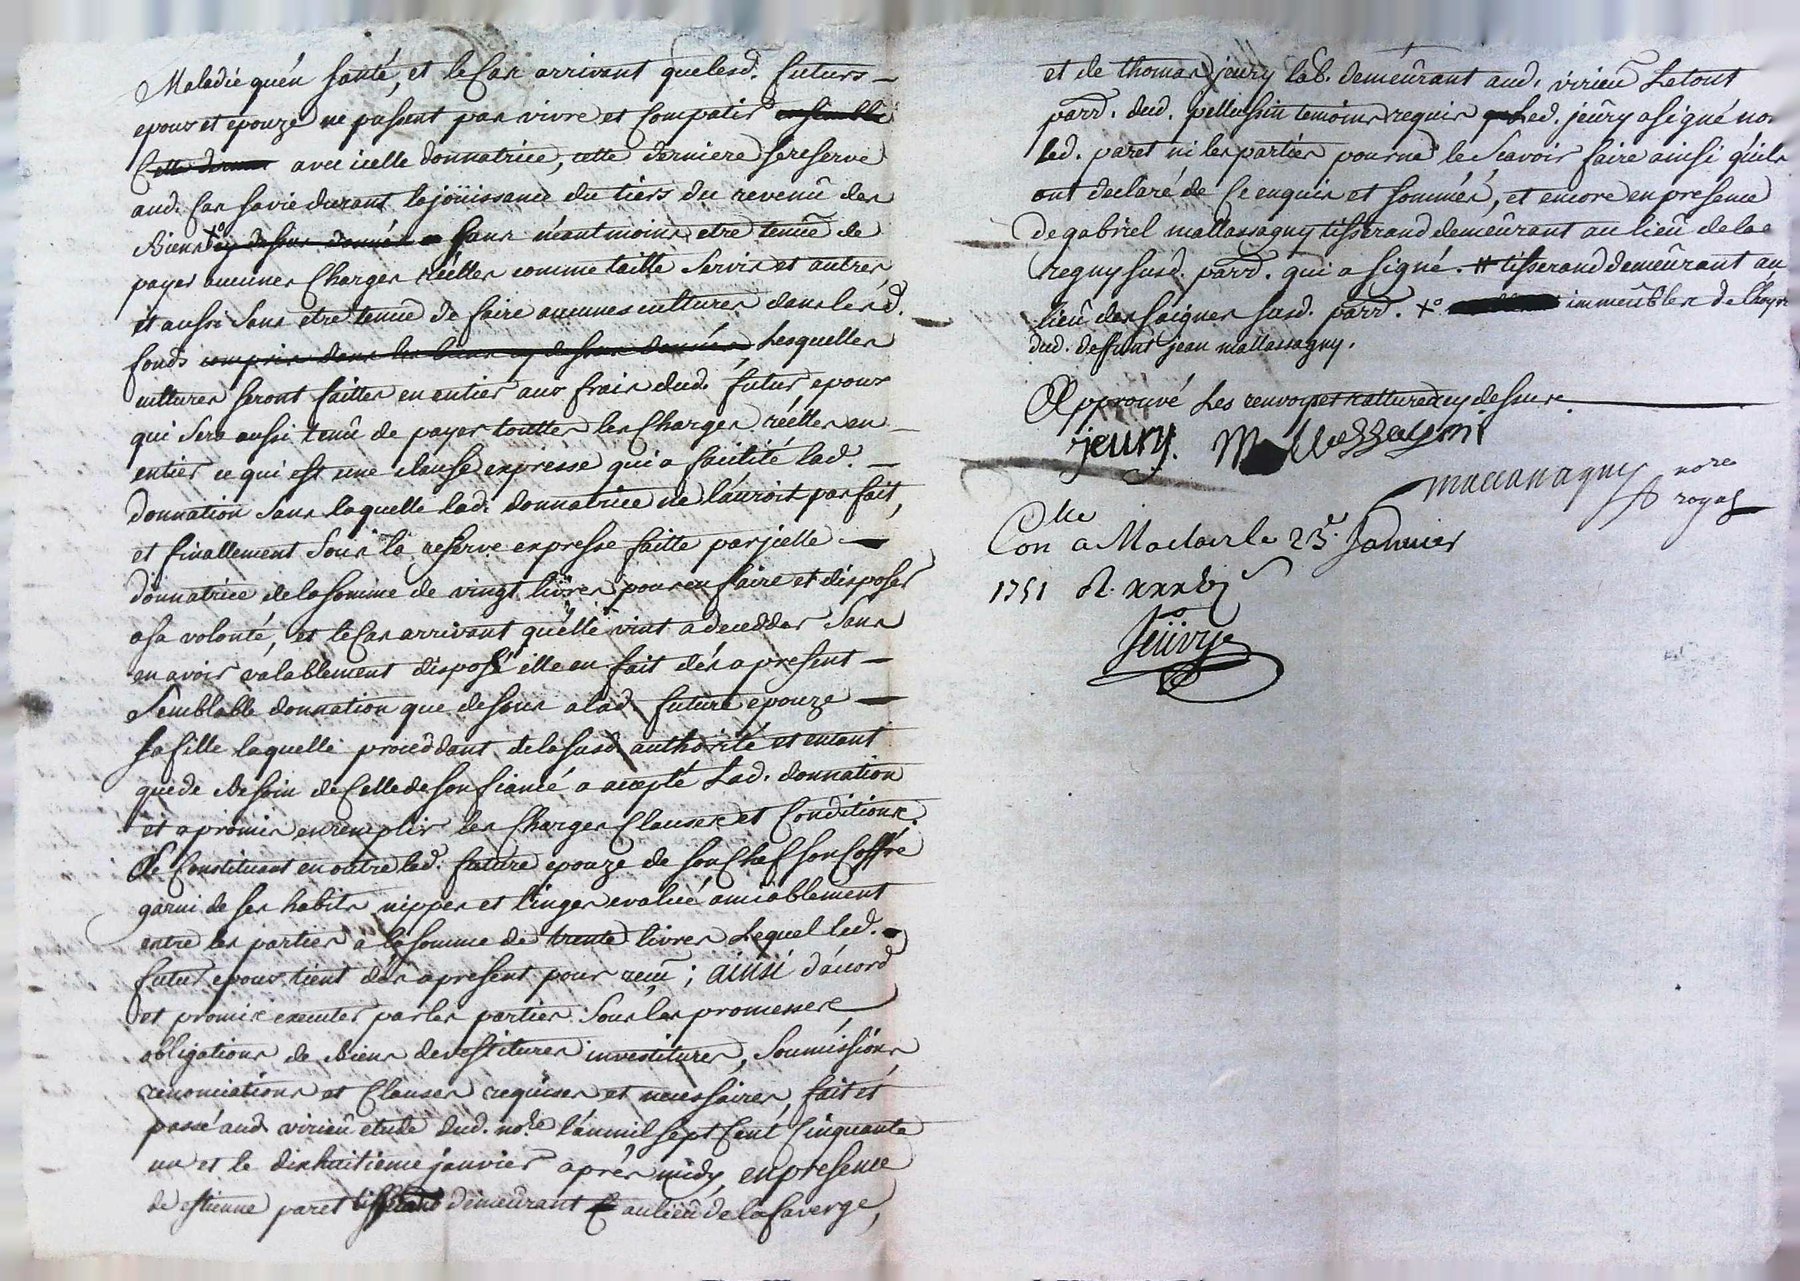 Maladie qu'en santé, et le Cas arrivant que lesd. futurs
epoux et epouze ne pussent pas vivre et Compatir ensemble
Cette derniere avec icelle donnatrice, cette derniere se reserve
aud. Cas sa vie durant la joüissance du tiers du revenû des
Biens +° cy dessus donnés sans néantmoins etre tenüe de
payer aucunes Charges réelles comme taille Servis et autres
et aussi Sans etre tenüe de faire aucunes cultures dans lesd.
fonds compris dans les biens cy dessus donnés Lesquelles
cultures seront faittes en entier aux frais dud. futur epoux
qui sera aussi tenû de payer touttes les Charges réelles en
entier ce qui est une clause expresse qui a facilité lad.
donnation sans laquelle lad. donnatrice ne l'auroit pas fait,
et finallement Sous la reserve expresse faitte par jcelle
donnatrice de la somme de vingt livres pour en faire et disposer
a sa volonté, et le Cas arrivant qu'elle vint a decedder Sans
en avoir valablement disposé elle en fait dés a present
Semblable donnation que dessus a lad. future epouze
sa fille laquelle proceddant de la susd. authorité et entant
que de besoin de Celle de son fiancé a accepté Lad. donnation
et a promis en remplir les Charges Clauses et Conditions.
Se Constituant en outre lad. future epouze de son Chef son Coffre
garni de ses habits nippes et linges evalué amiablement
entre les parties a la somme de trente livres Lequel led.
futur epoux tient dés a present pour recû ; ainsi d'accord
et promis executer par les parties Sous les promesses
obligations de Biens devestitures investitures, Soumissions
renonciations et Clauses requises et necessaires, fait et
passé aud. virieû etude dud. nore. l'an mil sept Cent Cinquante
un et le dixhuitieme janvier aprés midy, en presence
de estienne paret tisserand demeurant au lieû de la faverge,
et de thomas jeury lab. demeûrant aud. virieû Le tout
parr. dud. pellussin temoins requis Led. jeûry a signé non
Led. paret ni les parties pour ne le Scavoir faire ainsi qu'ils
ont declaré de Ce enquis et sommés, et encore en presence
de gabriel mallassagny tisserand demeûrant au lieû de la
regny susd. parr. qui a signé. # tisserand demeûrant au
lieû des saignes susd. parr. +° immeûbles de l'hoyrie
dud. deffunt jean mallassagny.
Approuvé Les renvoys et rattured cy dessus.
jeury. Mallassagni
mallassagny nore
royal
Conlle a Maclas le 23e. Janvier
1751 R. xxxvj s
Jeüvry